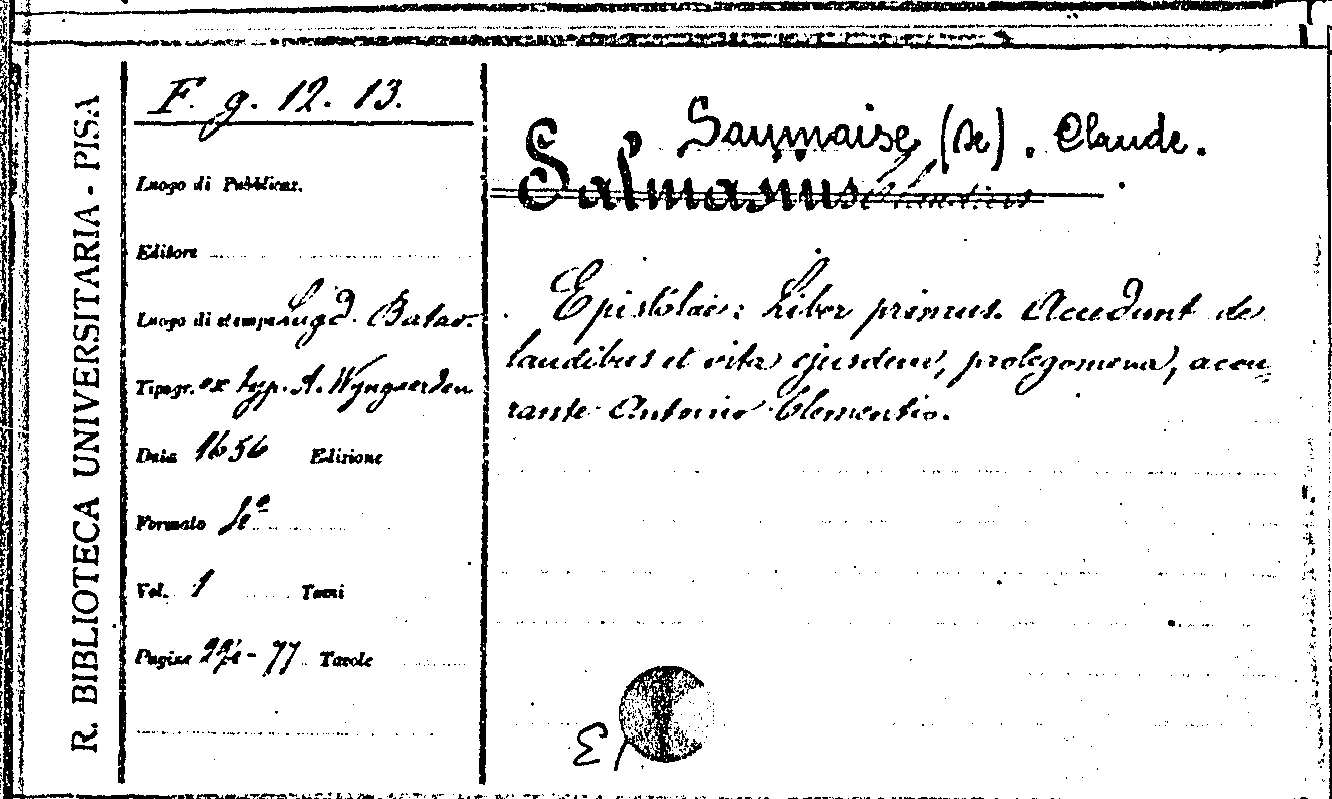 R. BIBLIOTECA UNIVERSITARIA - PISA
F. g. 12. 13.
Luogo di Pubblicaz.
Editore
Luogo di stampa Lugd. Batav.
Tipogr. ex typ. A. Wyngaerden
Data 1656 Edizione
Formato
Vol. 1 Tomi
Pagine - 77 Tavole
Saumaise (de). Claude.
Salmasius Claudius
Epistolae: Liber primus. Accedunt de
laudibus et vita ejusdem, prolegomena, accu=
rante Antonio Clementio.